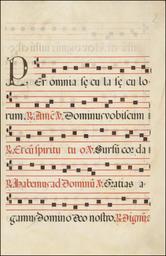 Per omnia sę cu la sę cu lo
rum. ℟. Amē. ℣. Dominus vobiscum
℟. Et cū spiritu tuo. ℣. Sursū cor da
℟. Habemus ad Dominū. ℣. Gratias a
gamus Domino deo nostro. ℟. Dignū